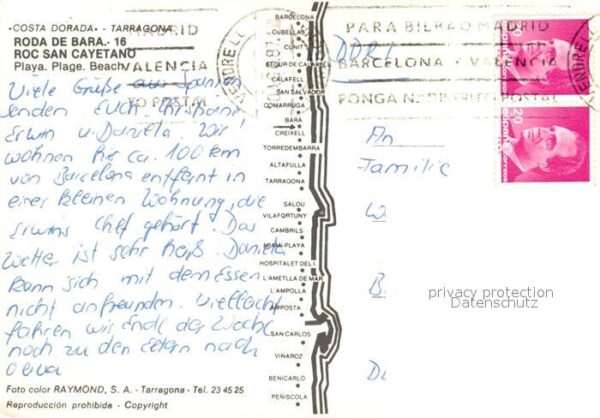 «COSTA DORADA» - TARRAGONA
RODA DE BARA.- 16
ROC SAN CAYETANO
Playa. Plage. Beach.
Viele Grüße aus Spanien
senden Euch
Erwin u. Daniela. Wir
wohnen hier ca. 100 km
von Barcelona entfernt in
einer kleinen Wohnung, die
Erwins Chef gehört. Das
Wetter ist sehr heiß. Daniela
kann sich mit dem Essen
nicht anfreunden. Vielleicht
fahren wir Ende der Woche
noch zu den Eltern nach
Oliva
Foto color RAYMOND, S. A. - Tarragona - Tel. 23 45 25
Reproducción prohibida - Copyright
BARCELONA
CUBELLAS
CUNIT
SEGUR DE CALAFELL
CALAFELL
SAN SALVADOR
COMARRUGA
BARA
CREIXELL
TORREDEMBARRA
ALTAFULLA
TARRAGONA
SALOU
VILAFORTUNY
CAMBRILS
MIAMI-PLAYA
HOSPITALET DEL I.
L'AMETLLA DE MAR
L'AMPOLLA
AMPOSTA
SAN CARLOS
VINAROZ
BENICARLO
PEÑISCOLA
MADRID
VALENCIA
POSTAL
VENDRELL
PARA BILBAO MADRID
BARCELONA Y VALENCIA
PONGA N. DISTRITO POSTAL
VENDRELL
20
España
correos
20
España
correos
An
Familie
W
B
D
privacy protection
Datenschutz